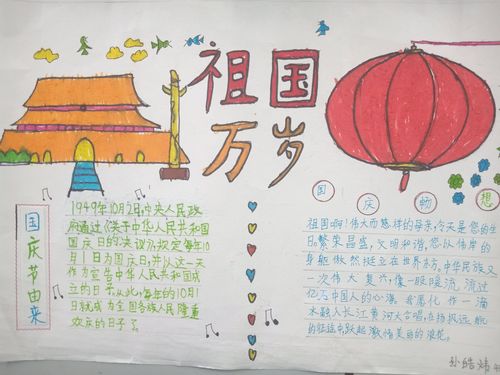 祖国
万岁
国庆节由来
1949年10月2日,中央人民政
府通过《关于中华人民共和国
国庆日的决议》,规定每年10
月1日为国庆日,并以这一天
作为宣告中华人民共和国成
立的日子。从此,每年的10月1
日就成为全国各族人民隆重
欢庆的日子了。
国庆畅想
祖国啊!伟大而慈祥的母亲,今天是您的生
日。繁荣昌盛,文明和谐,您以伟岸的
身躯傲然挺立在世界东方。中华民族又
一次伟大复兴,像一股暖流,流过
亿万中国人的心潮。我愿化作一滴
水融入长江黄河大合唱,在扬帆远航
的征途中,跃起激情美丽的浪花。
孙皓